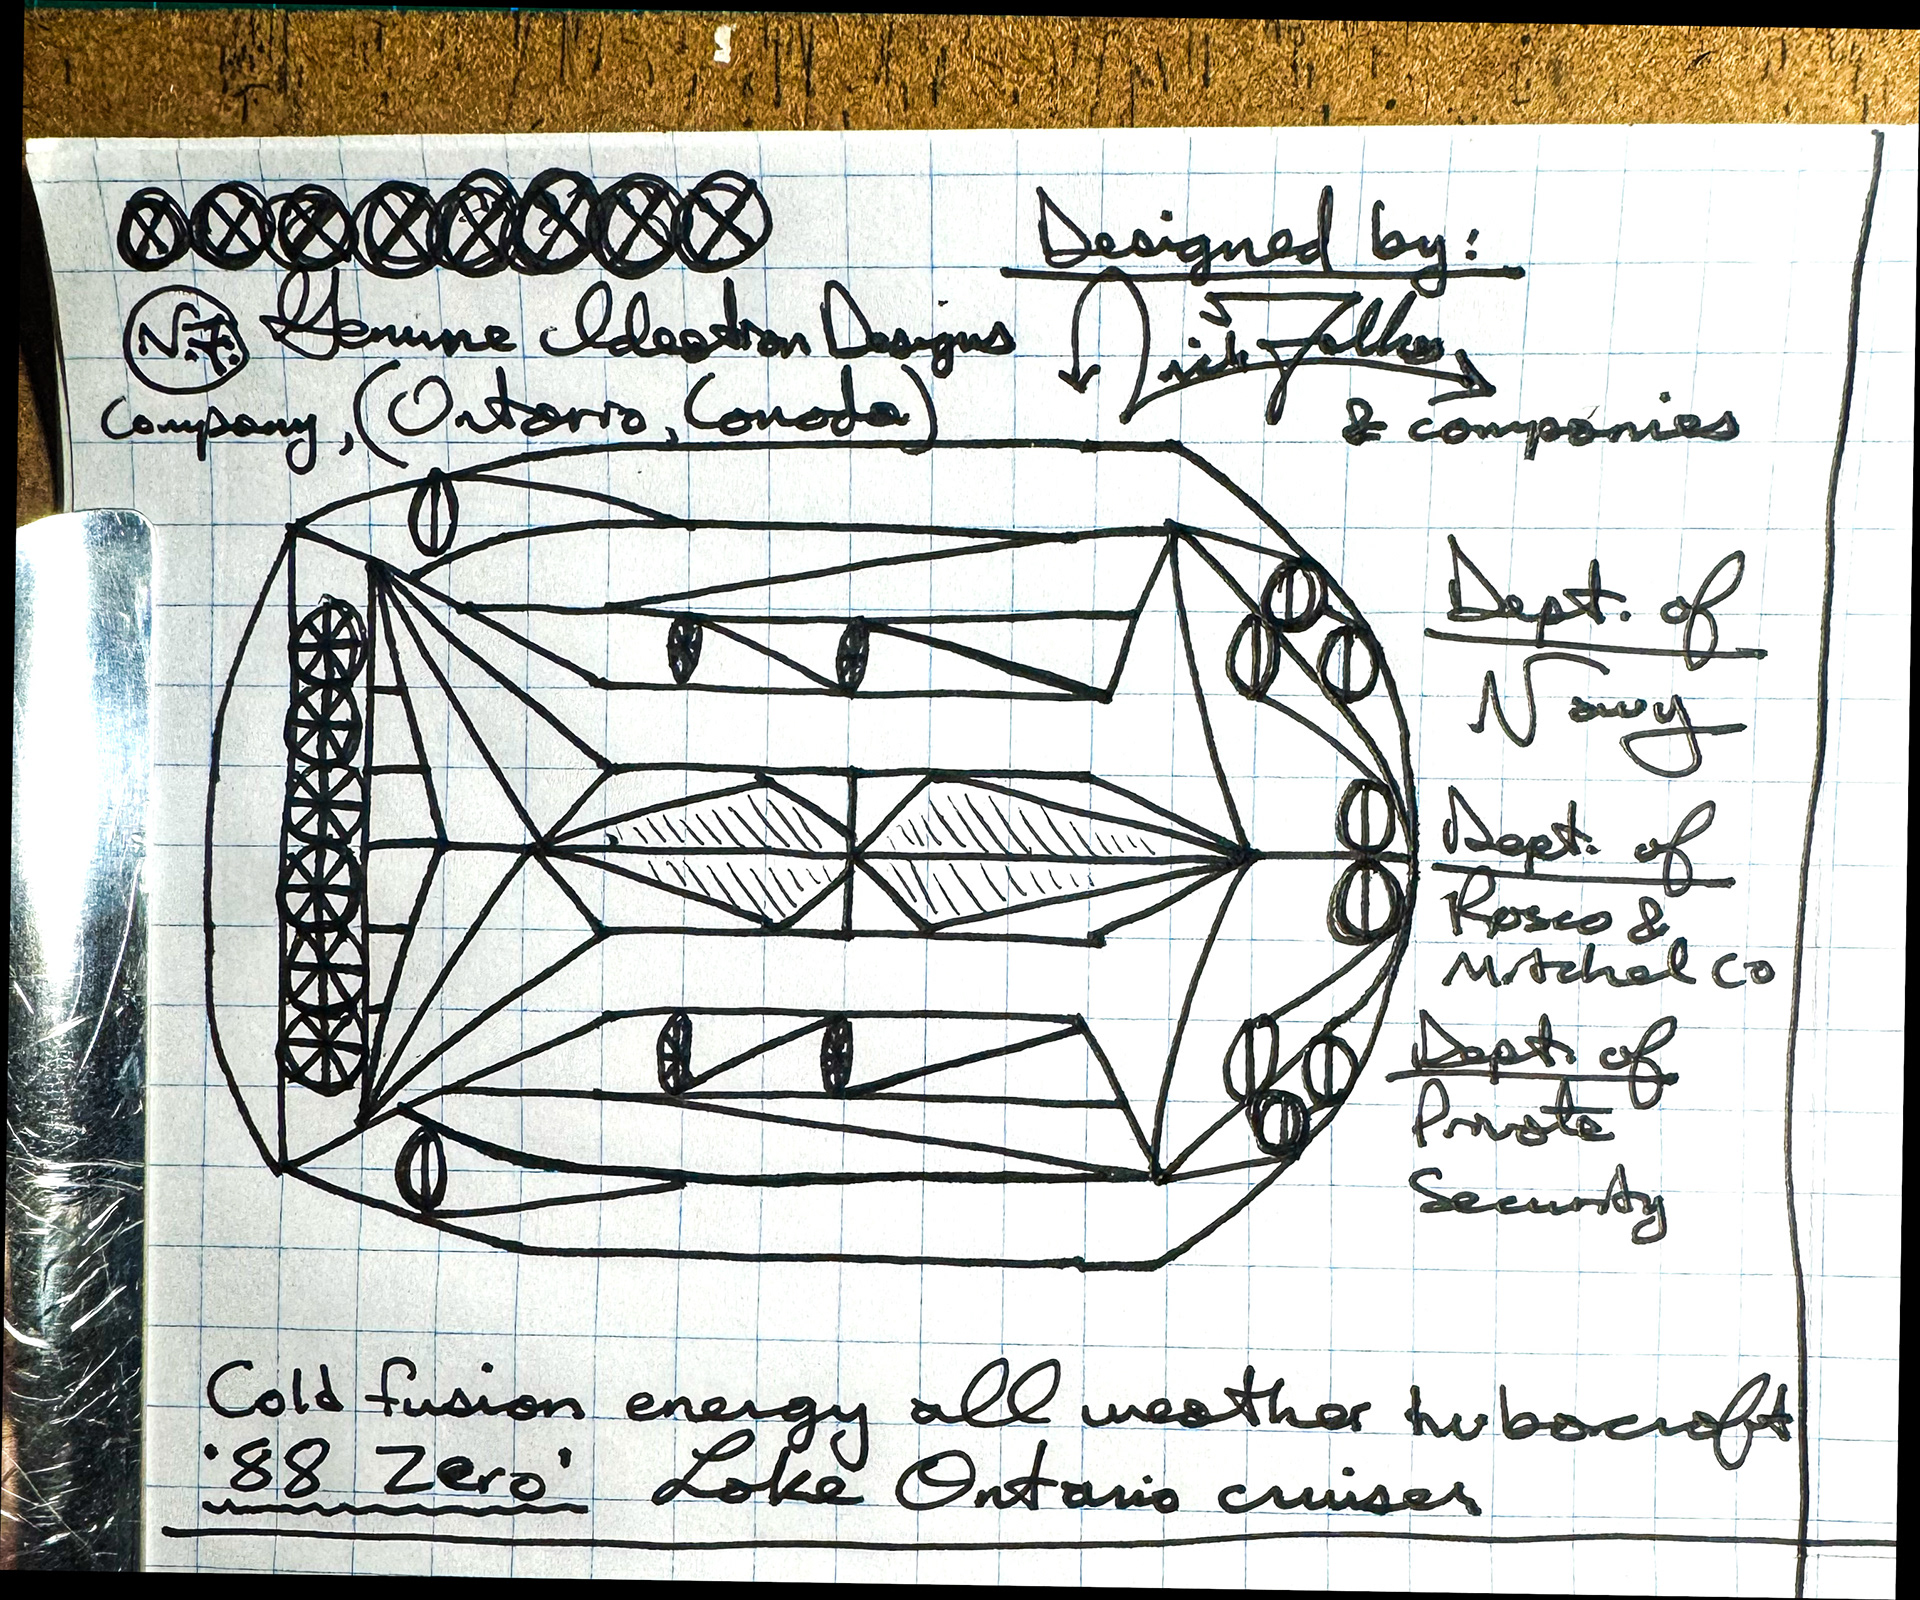 Designed by:
N.F. Genuine Ideation Designs
Nick Folkes
Company, (Ontario, Canada)
& companies
Dept. of
Navy
Dept. of
Rosco &
Mitchel Co
Dept. of
Private
Security
Cold fusion energy all weather turbocraft
'88 Zero' Lake Ontario cruiser